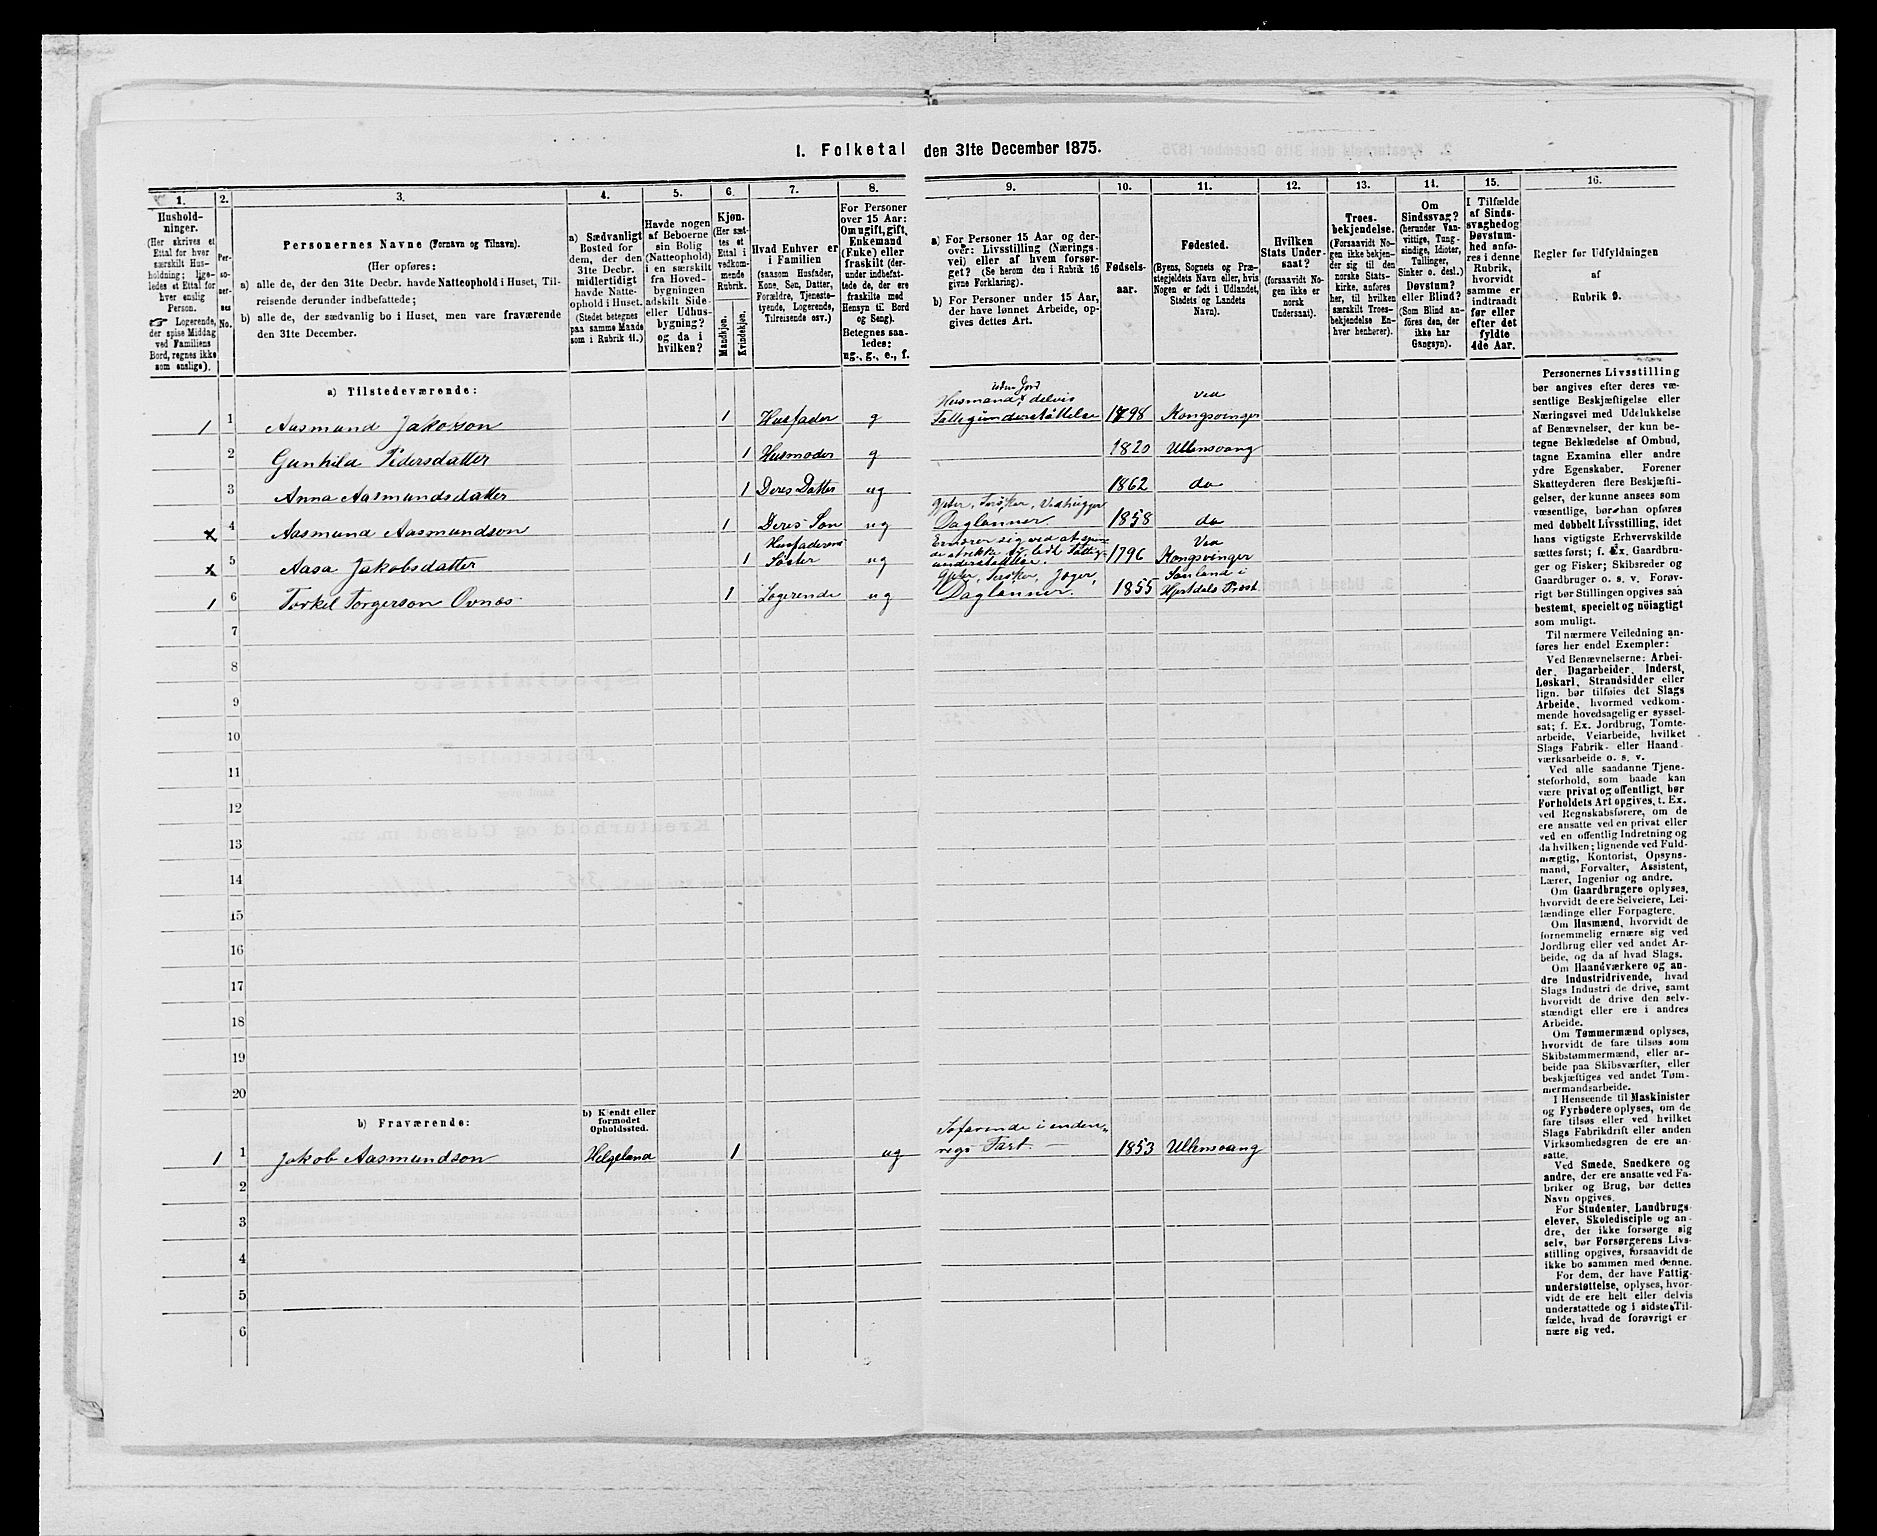 1. Folketal den 31te December 1875.
1.
Hushold-
ninger.
(Her skrives et
Ettal for hver
særskilt Hus-
holdning; lige-
ledes et Ettal for
hver enslig
Person.
☞ Logerende,
der spise Middag
ved Familiens
Bord, regnes ikke
som enslige).
2.
Per-
so-
ner-
nes
No.
3.
Personernes Navne (Fornavn og Tilnavn).
(Her opføres:
a) alle de, der den 31te Decbr. havde Natteophold i Huset, Til-
reisende derunder indbefattede;
b) alle de, der sædvanlig bo i Huset, men vare fraværende
den 31te December.
4.
a) Sædvanligt
Bosted for
dem, der den
31te Decbr.
midlertidigt
havde Natte-
ophold i Huset.
(Stedet betegnes
paa samme Maade
som i Rubrik 11.)
5.
Havde nogen
af Beboerne
sin Bolig
(Natteophold)
i en særskilt
fra Hoved-
bygningen
adskilt Side-
eller Udhus-
bygning?
og da i
hvilken?
6.
Kjøn.
(Her sæt-
tes et
Ettal i
vedkom-
mende
Rubrik.
Mandkjøn.
Kvindekjøn.
7.
Hvad Enhver er
i Familien
(saasom Husfader,
Kone, Søn, Datter,
Forældre, Tjeneste-
tyende, Logerende,
Tilreisende osv.)
8.
For Personer
over 15 Aar:
Om ugift, gift,
Enkemand
(Enke) eller
fraskilt (der-
under indbefat-
tede de, der ere
fraskilte med
Hensyn til Bord
og Seng).
Betegnes saa-
ledes:
ug., g., e., f.
9.
a) For Personer 15 Aar og der-
over: Livsstilling (Nærings-
vei) eller af hvem forsør-
get? (Se herom den i Rubrik 16
givne Forklaring).
b) For Personer under 15 Aar,
der have lønnet Arbeide, op-
gives dettes Art.
10.
Fødsels-
aar.
11.
Fødested.
(Byens, Sognets og Præ-
stegjeldets Navn eller, hvis
Nogen er født i Udlandet,
Stedets og Landets
Navn).
12.
Hvilken
Stats Under-
saat?
(forsaavidt No-
gen ikke er
norsk
Undersaat).
13.
Troes-
bekjendelse.
(Forsaavidt No-
gen ikke bekjen-
der sig til den
norske Stats-
kirke, anføres
her, til hvilken
særskilt Troes-
bekjendelse En-
hver henhører).
14.
Om
Sindssvag?
(herunder Van-
vittige, Tung-
sindige, Idioter,
Tullinger,
Sinker o. desl.)
Døvstum?
eller Blind?
(Som Blind an-
føres den, der
ikke har
Gangsyn).
15.
I Tilfælde
af Sinds-
svaghed og
Døvstum-
hed anfø-
res i denne
Rubrik,
hvorvidt
samme er
indtraadt
før eller
efter det
fyldte
4de Aar.
16.
Regler før Udfyldningen
af
Rubrik 9.
a) Tilstedeværende:
1 1 Aasmund Jakobson 1 Husfader g Husmand uden Jord, delvis Fattigunderstøttelse 1798 ved Kongsvinger
2 Gunhild Pedersdatter 1 Husmoder g 1820 Ullensvang
3 Anna Aasmundsdatter 1 Deres Datter ug 1862 do
x 4 Aasmund Aasmundson 1 Deres Søn ug Gjeter, Tærsker, Vedhugger Daglønner 1858 do
x 5 Aasa Jakobsdatter 1 Husfaderens Søster ug Ernærer sig ved at spinde strikke og lidt Fattigunderstøttelse. 1796 Ved Kongsvinger
1 6 Torkel Torgerson Ovnæs 1 Logerende ug Gjeter, Tærsker, Jæger, Daglønner. 1855 Sauland i Hjertdals Præst.
7
8
9
10
11
12
13
14
15
16
17
18
19
20
b) Fraværende:
b) Kjendt eller
formodet
Opholdssted.
1 1 Jakob Aasmundson Helgeland 1 ug Søfarende i indenrigs Fart — 1853 Ullensvang
2
3
4
5
6
Personernes Livsstilling
bør angives efter deres væ-
sentlige Beskjæftigelse eller
Næringsvei med Udelukkelse
af Benævnelser, der kun be-
tegne Beklædelse af Ombud,
tagne Examina eller andre
ydre Egenskaber. Forener
Skatteyderen flere Beskjæfti-
gelser, der kunne ansees som
væsentlige, bør han opføres
med dobbelt Livsstilling, idet
hans vigtigste Erhvervskilde
sættes først; f. Ex. Gaardbru-
ger og Fisker; Skibsreder og
Gaardbruger o. s. v. Forøv-
rigt bør Stillingen opgives saa
bestemt, specielt og nöiagtigt
som muligt.
Til nærmere Veiledning an-
føres her endel Exempler:
Ved Benævnelserne: Arbei-
der, Dagarbeider, Inderst,
Løskarl, Strandsidder eller
lign. bør tilføies det Slags
Arbeide, hvormed vedkom-
mende hovedsagelig er syssel-
sat; f. Ex. Jordbrug, Tomte-
arbeide, Veiarbeide, hvilket
Slags Fabrik- eller Haand-
værksarbeide o. s. v.
Ved alle saadanne Tjene-
steforhold, som baade kan
være privat og offentligt, bør
Forholdets Art opgives, t. Ex.
ved Regnskabsførere, om de
ere ansatte ved en privat eller
ved en offentlig Indretning og
da hvilken; lignende ved Fuld-
mægtig, Kontorist, Opsyns-
mand, Forvalter, Assistent,
Lærer, Ingeniør og andre.
Om Gaardbrugere oplyses,
hvorvidt de ere Selveiere, Lei-
lændinge eller Forpagtere.
Om Husmænd, hvorvidt de
fornemmelig ernære sig ved
Jordbrug eller ved andet Ar-
beide, og da af hvad Slags.
Om Haandværkere og an-
dre Industridrivende, hvad
Slags Industri de drive, samt
hvorvidt de drive den selv-
stændigt eller ere i andres
Arbeide.
Om Tømmermænd oplyses,
hvorvidt de fare tilsøs som
Skibstømmermænd, eller ar-
beide paa Skibsværfter, eller
beskjæftiges ved andet Tøm-
mermandsarbeide.
I Henseende til Maskinister
og Fyrbødere oplyses, om de
fare tilsøs eller ved hvilket
Slags Fabrikdrift eller anden
Virksomhedsgren de ere an-
satte.
Ved Smede, Snedkere og
andre, der ere ansatte ved Fa-
briker og Brug, bør dettes
Navn opgives.
For Studenter, Landbrugs-
elever, Skoledisciple og an-
dre, der ikke forsørge sig
selv, bør Forsørgerens Livs-
stilling opgives, forsaavidt de
ikke bo sammen med denne.
For dem, der have Fattig-
understøttelse, oplyses, hvor-
vidt de ere helt eller delvis
understøttede og i sidste Til-
fælde, hvad de forøvrigt er
nære sig ved.